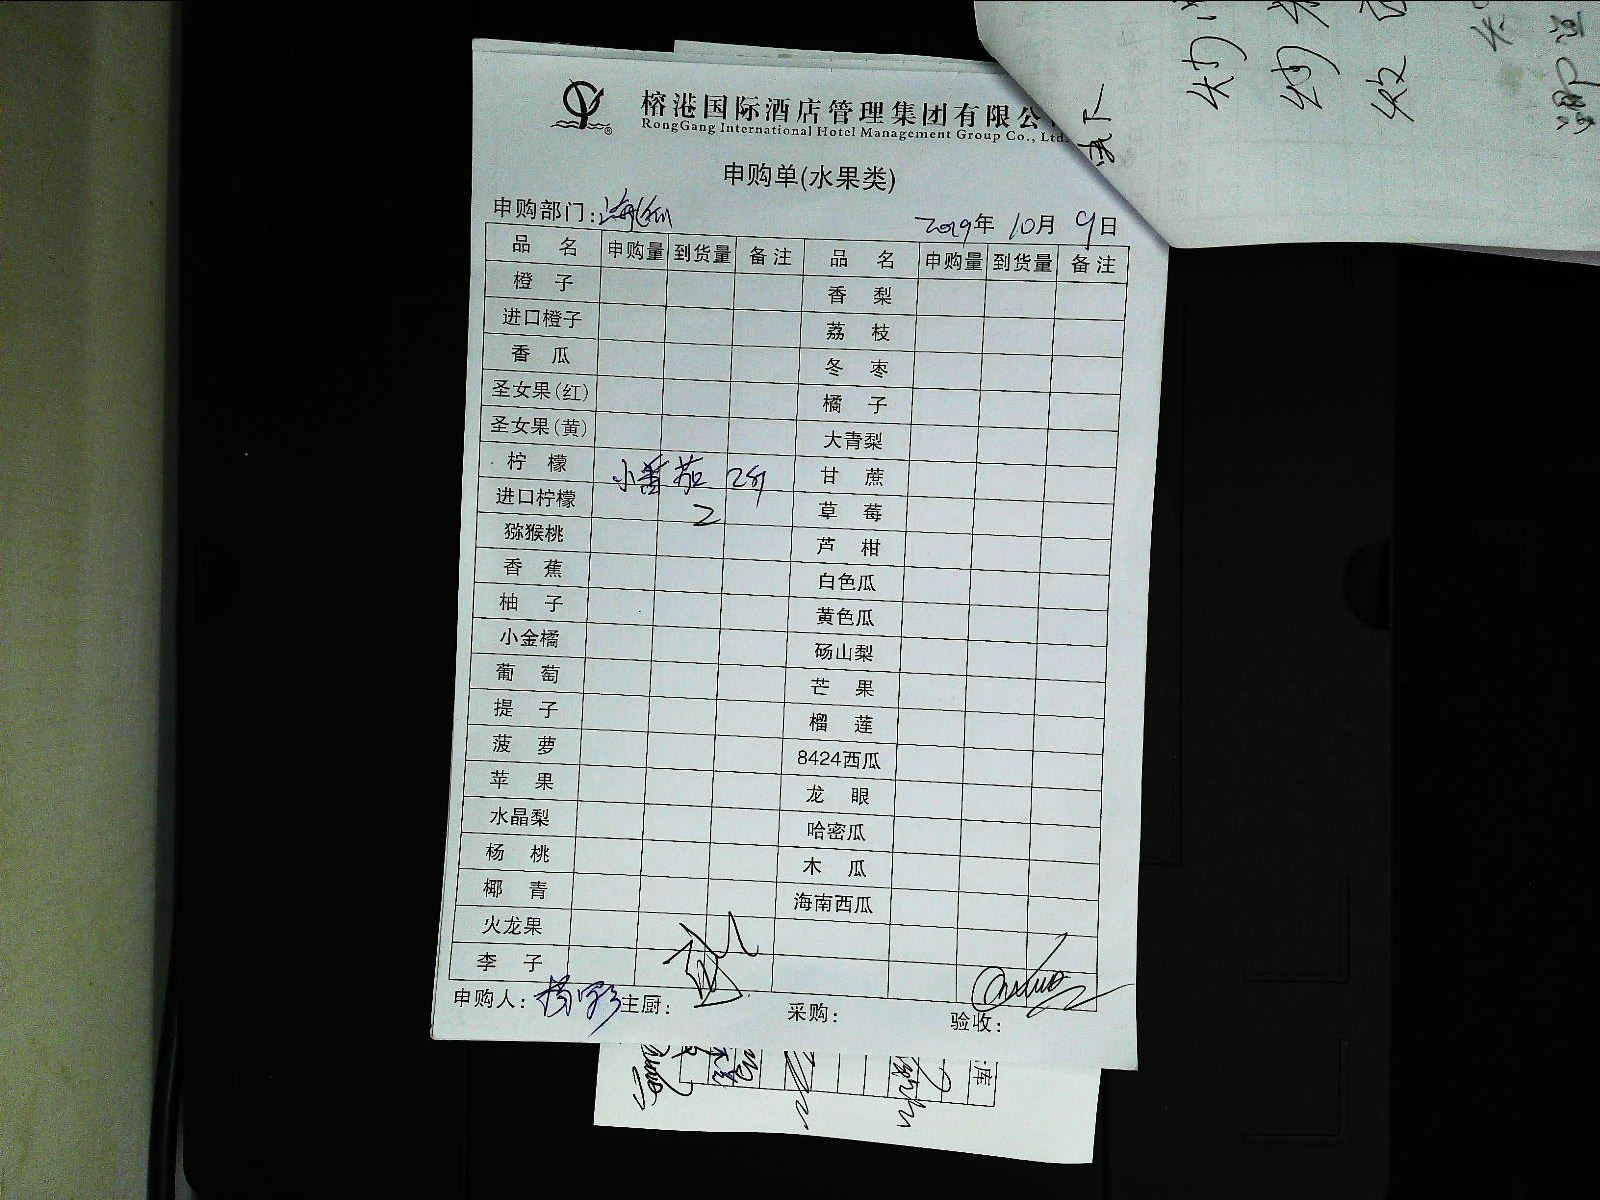 榕港国际酒店管理集团有限公
RongGang International Hotel Management Group Co., Ltd.
申购单(水果类)
申购部门:
2019年 10月 9日
品 名 申购量 到货量 备注 品 名 申购量 到货量 备注
橙 子 香 梨
进口橙子 荔 枝
香 瓜 冬 枣
圣女果(红) 橘 子
圣女果(黄) 大青梨
柠 檬 小番茄 2斤 甘 蔗
进口柠檬 2 草 莓
猕猴桃 芦 柑
香 蕉 白色瓜
柚 子 黄色瓜
小金橘 砀山梨
葡 萄 芒 果
提 子 榴 莲
菠 萝 8424西瓜
苹 果 龙 眼
水晶梨 哈密瓜
杨 桃 木 瓜
椰 青 海南西瓜
火龙果
李 子
申购人: 主厨: 采购: 验收:
库